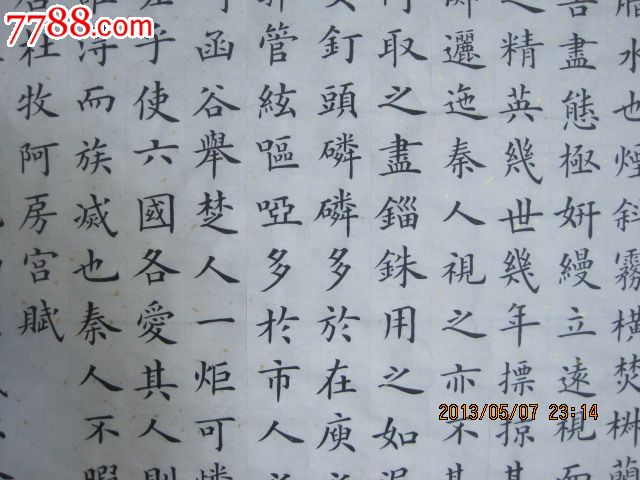 7788.com
水也煙斜霧橫焚椒蘭
盡態極妍縵立遠視而
之精英幾世幾年摽掠其
邐迤秦人視之亦不甚
取之盡錙銖用之如泥
女釘頭磷磷多於在庾
管絃嘔啞多扵市人
函谷舉楚人一炬可憐
子使六國各愛其人則
得而族滅也秦人不暇
杜牧阿房宮賦
2013/05/07 23:14